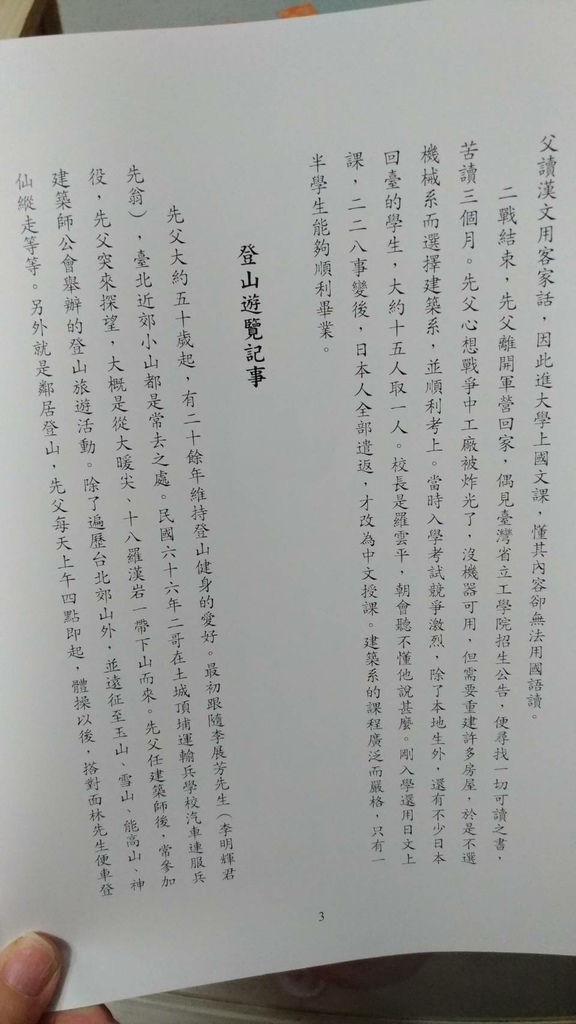 父讀漢文用客家話，因此進大學上國文課，懂其內容卻無法用國語讀。
二戰結束，先父離開軍營回家，偶見臺灣省立工學院招生公告，便尋找一切可讀之書，
苦讀三個月。先父心想戰爭中工廠被炸光了，沒機器可用，但需要重建許多房屋，於是不選
機械系而選擇建築系，並順利考上。當時入學考試競爭激烈，除了本地生外，還有不少日本
回臺的學生，大約十五人取一人。校長是羅雲平，朝會聽不懂他說甚麼。剛入學還用日文上
課，二二八事變後，日本人全部遣返，才改為中文授課。建築系的課程廣泛而嚴格，只有一
半學生能夠順利畢業。
登山遊覽記事
先父大約五十歲起，有二十餘年維持登山健身的愛好。最初跟隨李展芳先生（李明輝君
先翁），臺北近郊小山都是常去之處。民國六十六年二哥在土城頂埔運輸兵學校汽車連服兵
役，先父突來探望，大概是從大暖尖、十八羅漢岩一帶下山而來。先父任建築師後，常參加
建築師公會舉辦的登山旅遊活動。除了遍歷台北郊山外，並遠征至玉山、雪山、能高山、神
仙縱走等等。另外就是鄰居登山，先父每天上午四點即起，體操以後，搭對面林先生便車登
3